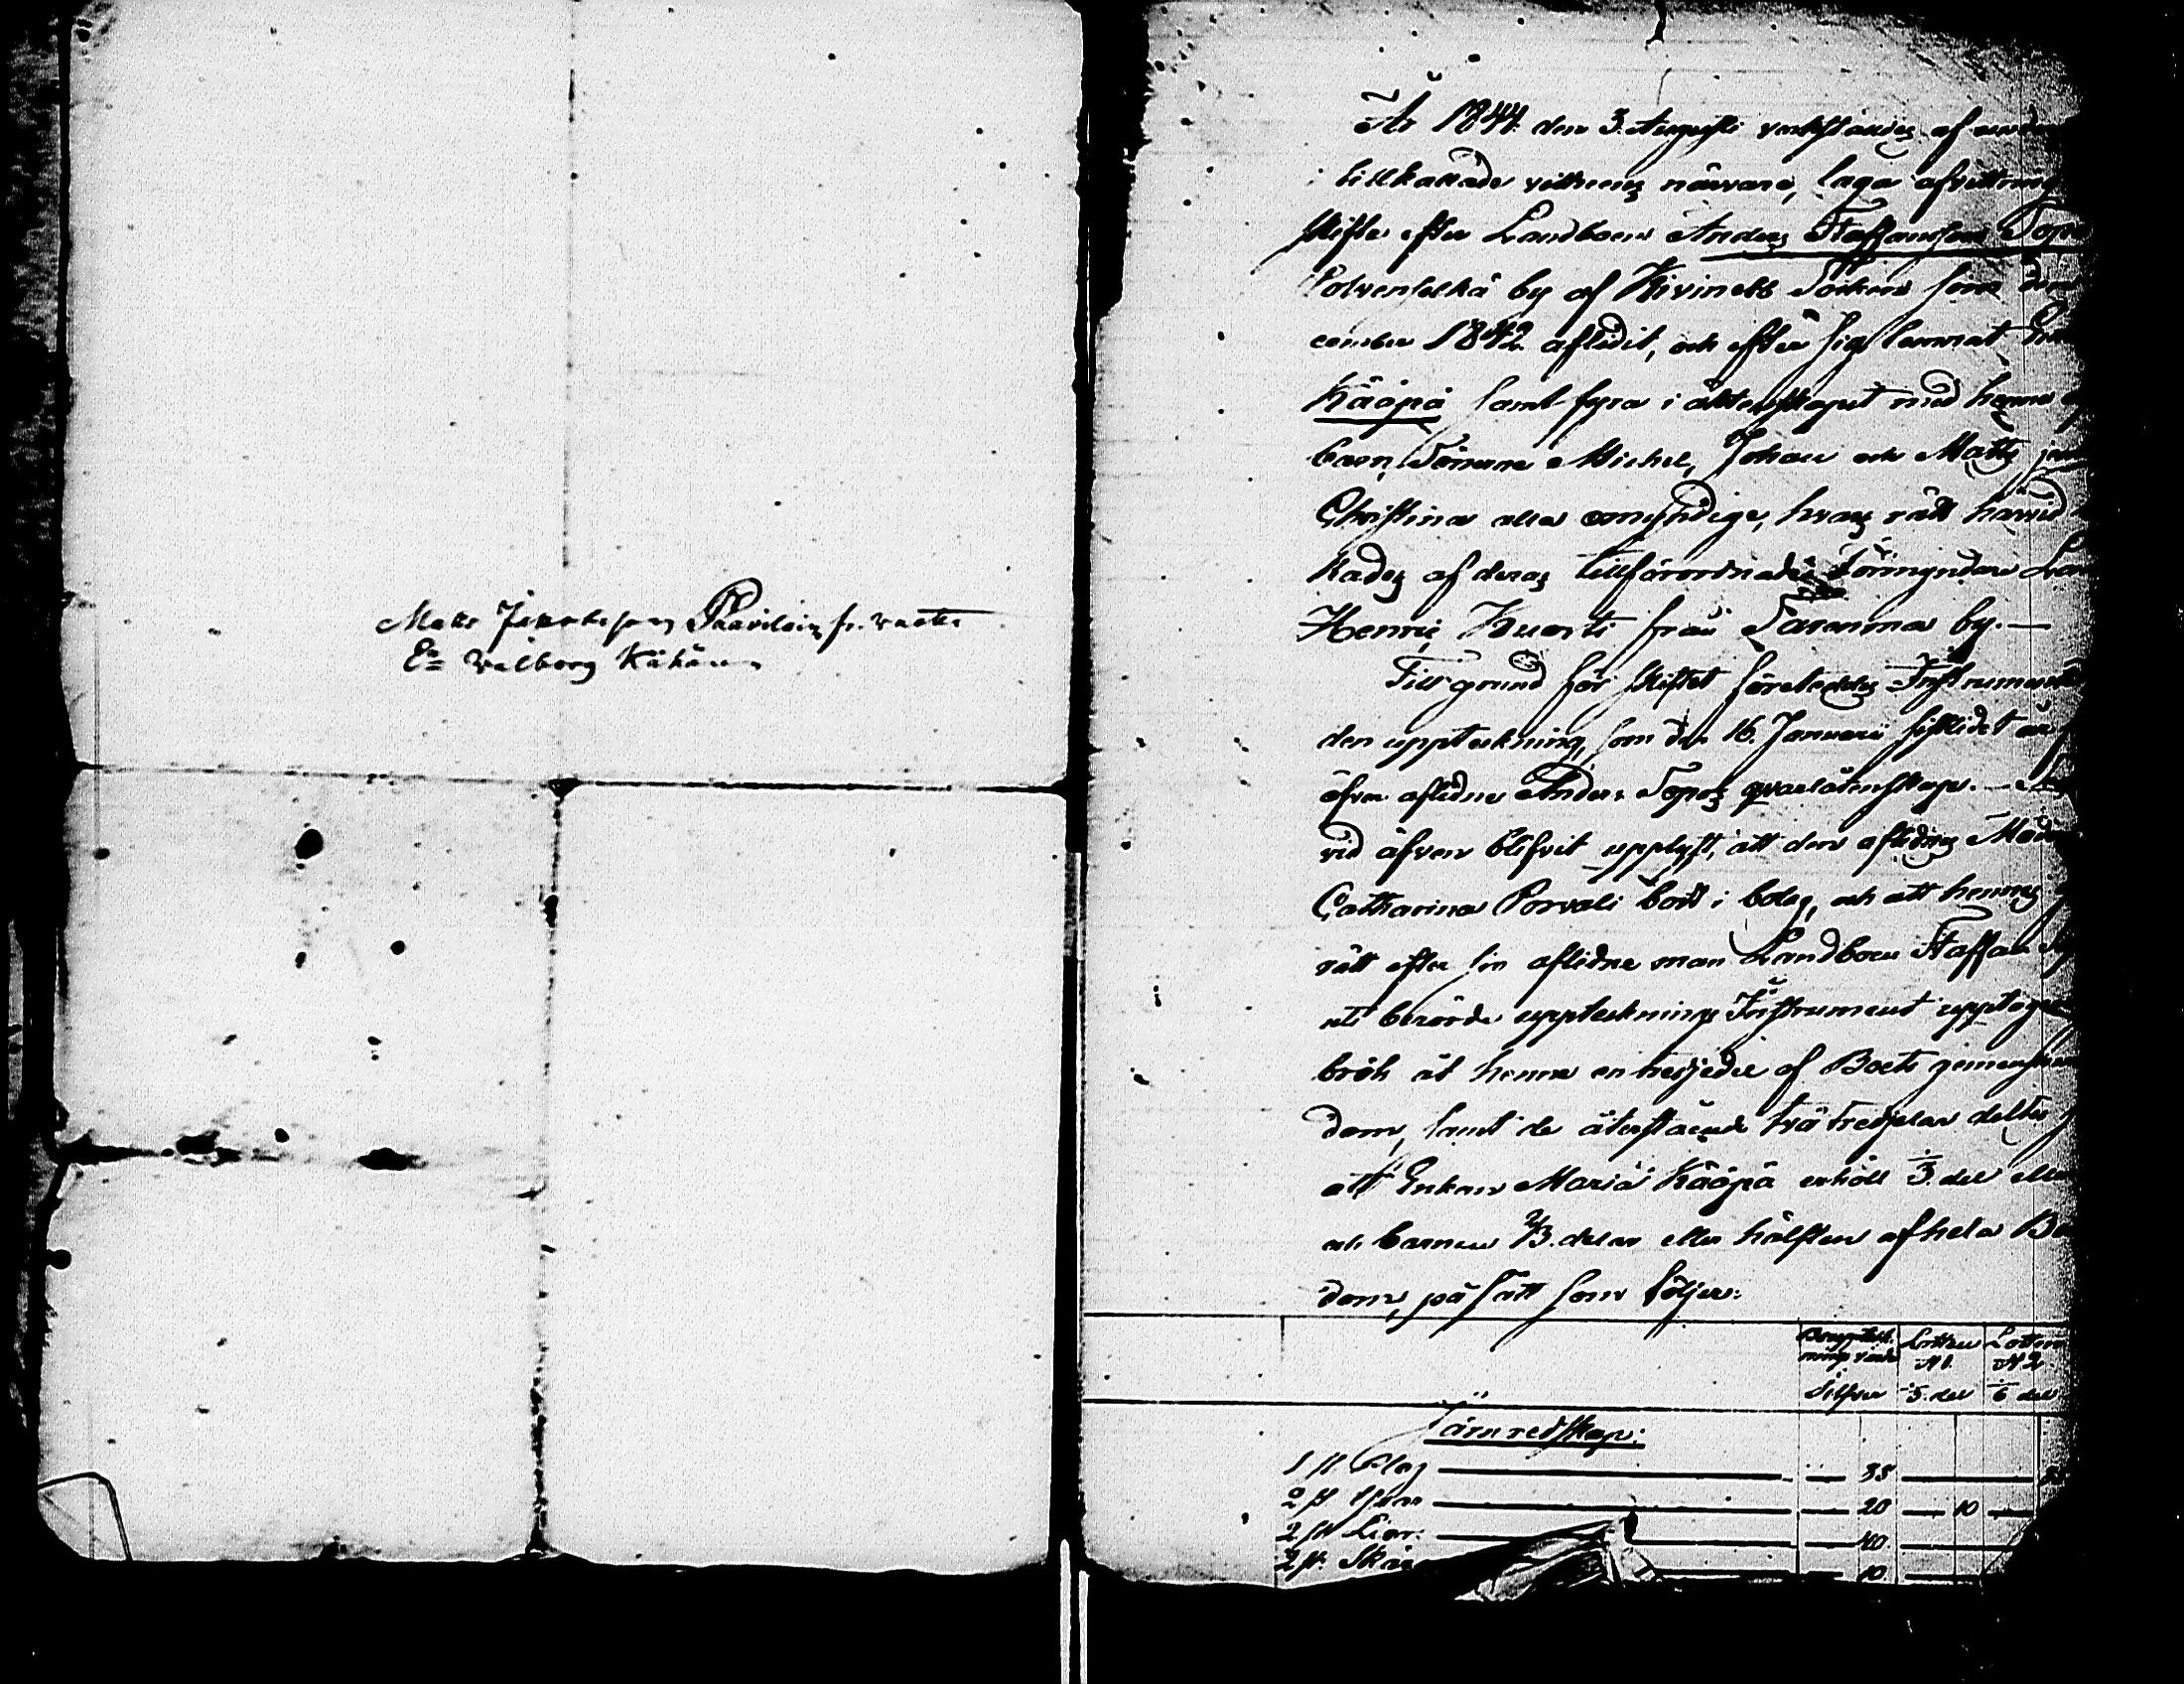 Matts Jakobsson Paavilain
En Valborg Kähäri
År 1844 den 3. Augusti verkställdes af
tillkallade vittnens närvaro, laga afvittring
skifte efter Landboen Anders Staffansson Topo
Polvenselkä by af Kivineb Socken som den
cember 1842 aflidit, och efter sig lemnat
Kääpä samt fyra i äktenskapet med henne
barn, Sönerne Michel, Johan och Matts
Christina alla omyndige, hvars rätt härvid
kades af deras tillförordnade Förmyndare
Henric Kuorti från Taranma by.—
Till grund för skiftet företeddes Instrument
den uppteckning, som den 16. Januarii sistlidet år
öfver aflidne Anders Topos qvarlåtenskap.—
vid äfven blifvit upplyst, att den aflidnes Moder
Catharina Porvali bodt i bolag, och att hennes
rätt efter sin aflidne man Landboen Staffan
uti berörde upptecknings Instrument upptages
bröts åt henne en tredjedel af Boets
dom, samt de återstående två tredjelar delte
att Enkan Maria Kääpä erhöll 1/3. del eller
och barnen 2/3. delar eller hälften af hela
dom, på sätt som följer:
Bouppteck- Lotten Lotten
nings värde N 1. N 2
Silfver 1/3. del 1/6 del
Järnredskap:
1 st. Plog — 35
2 st — 20 — 10
2 st Liar: — 40
2 st. Skär — 10